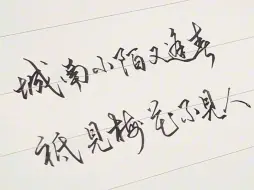 城南小陌又逢春
祗见梅花不见人